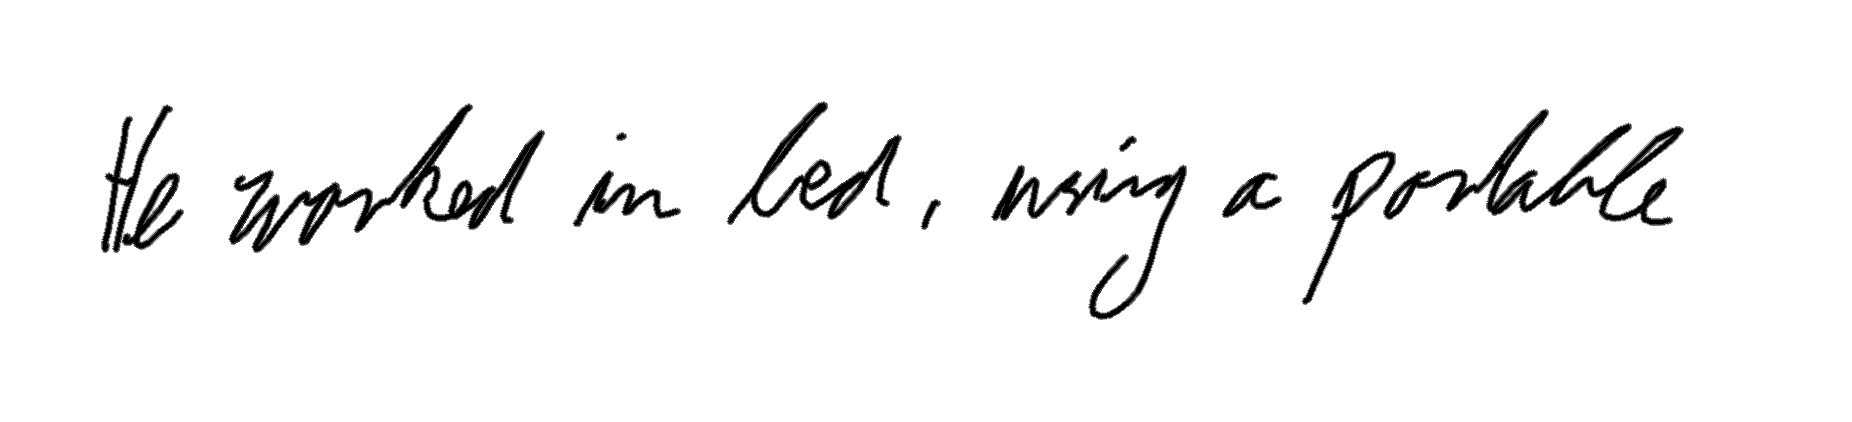 He worked in bed, using a portable